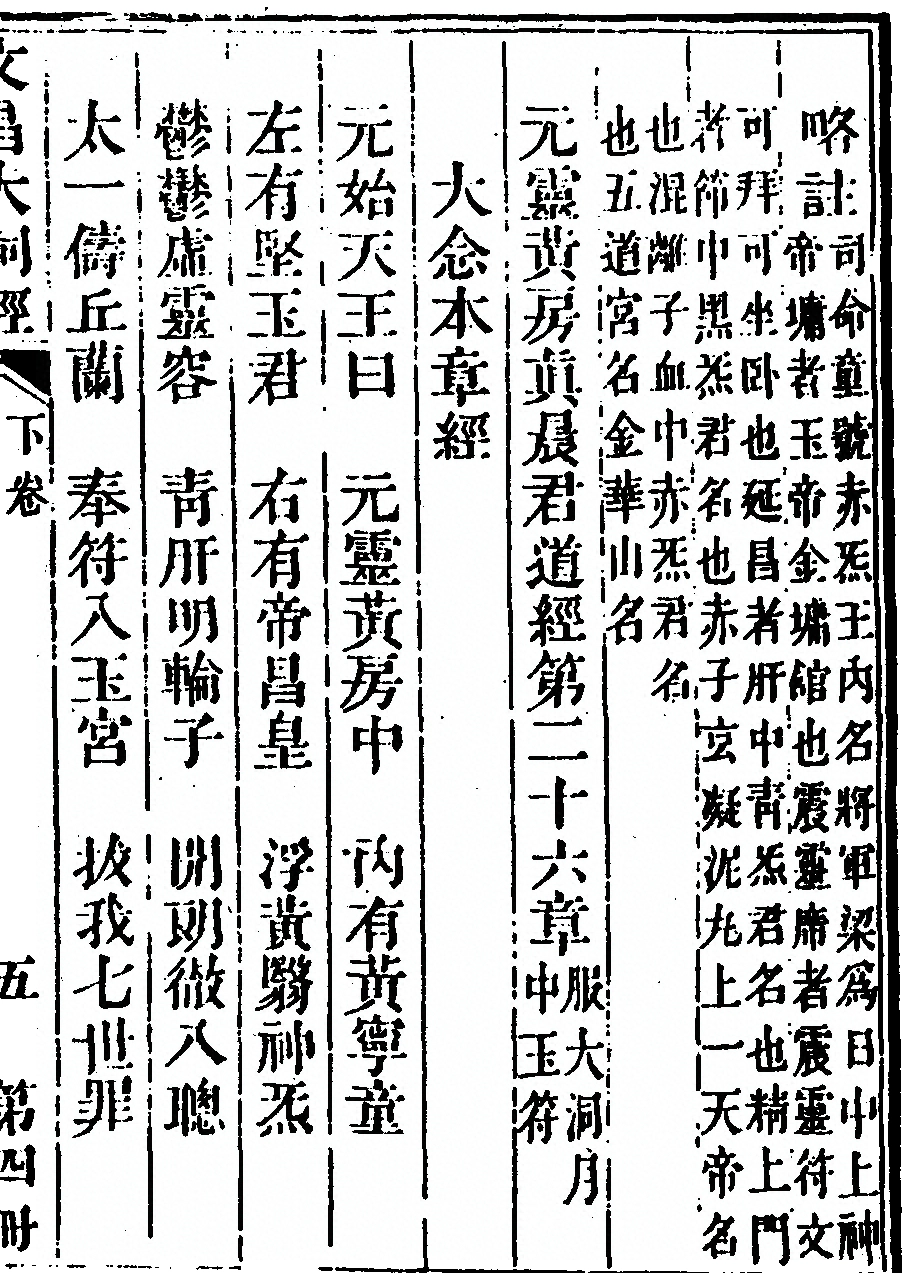 略註司命童號赤炁王内名將軍梁爲日中上神
帝墉者玉帝金墉館也震靈席者震靈符文
可拜可坐卧也延昌者肝中青炁君名也精上門
者節中黑炁君名也赤子玄凝泥丸上一天帝名
也混離子血中赤炁君名
也五道宮名金華山名
元靈黃房真晨君道經第二十六章服大洞月
中玉符
大念本章經
元始天王曰　元靈黃房中　内有黃寧童
左有堅玉君　右有帝昌皇　浮黃翳神炁
鬱鬱虛靈容　青肝明輪子　開朗徹八聰
太一儔丘蘭　奉符入玉宮　拔我七世罪
文昌大洞經　下卷　五　第四冊